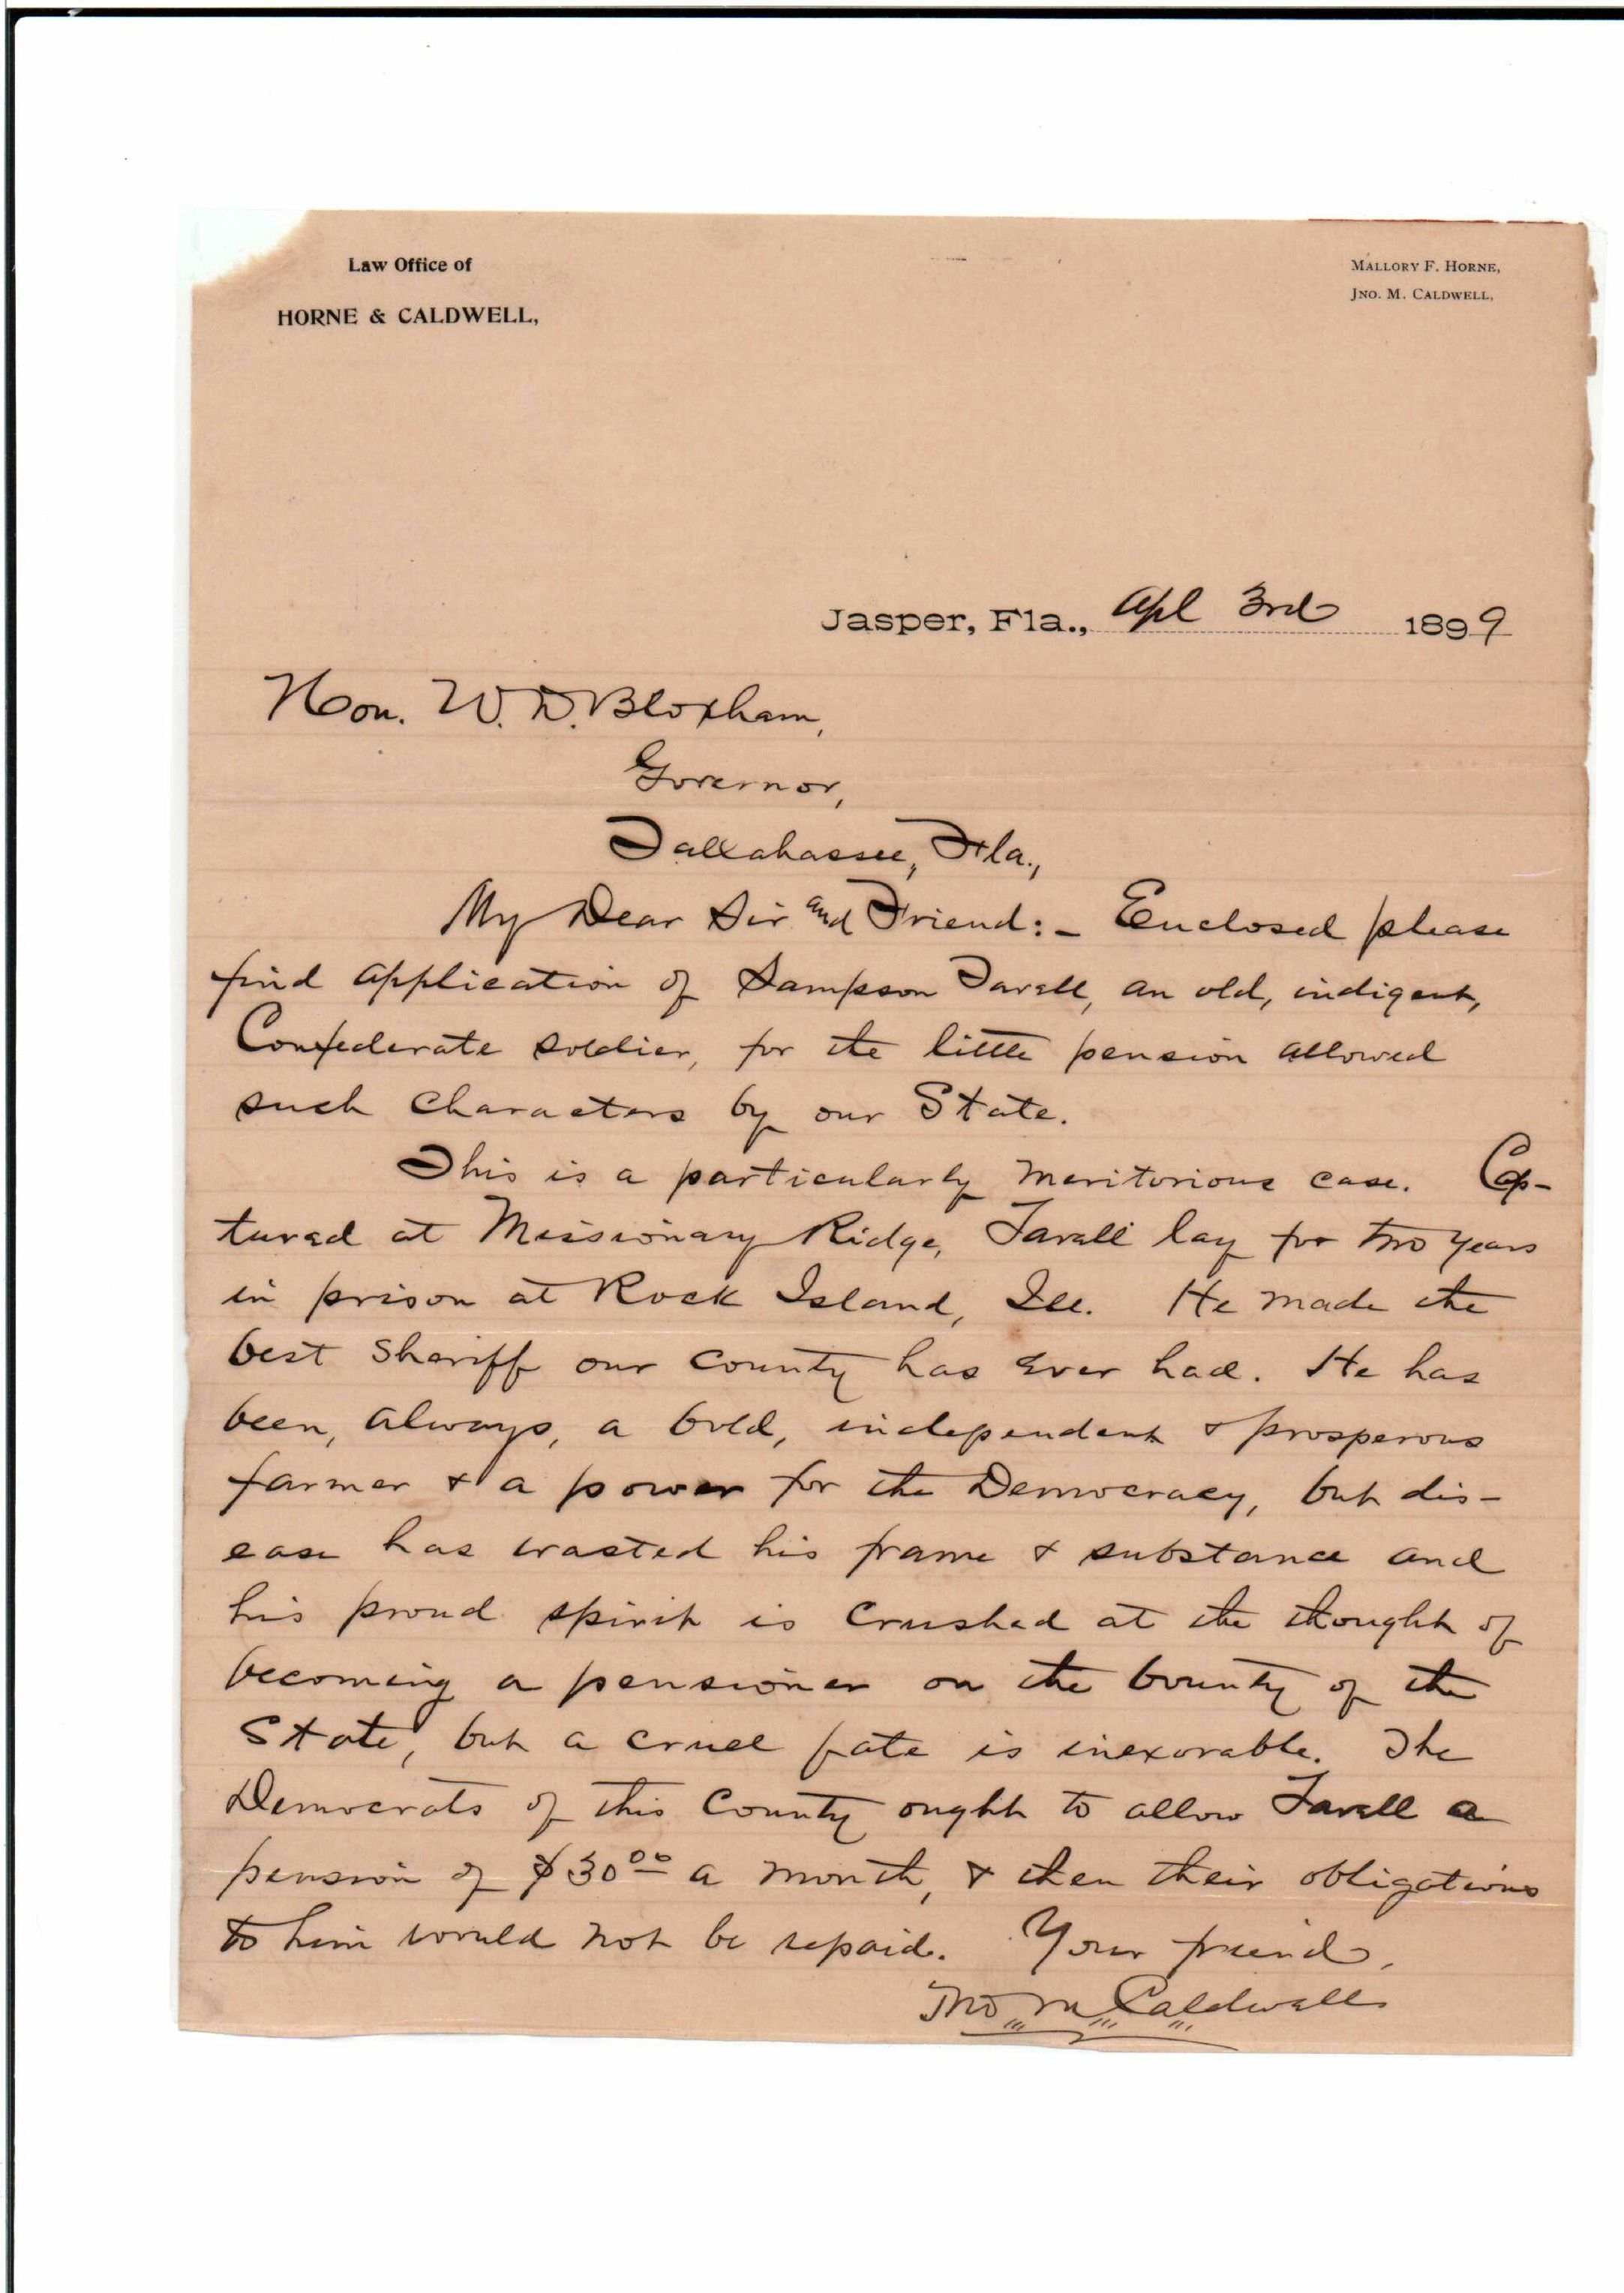 Law Office of
HORNE & CALDWELL,
MALLORY F. HORNE,
JNO. M. CALDWELL,
Jasper, Fla., Apl 3rd 1899
Hon. W. D. Bloxham,
Governor,
Tallahassee, Fla.,
My Dear Sir and Friend:- Enclosed please
find application of Sampson Tavell, an old, indigent,
Confederate soldier, for the little pension allowed
such characters by our State.
This is a particularly meritorious case. Cap-
tured at Missionary Ridge, Tavell lay for two years
in prison at Rock Island, Ill. He made the
best Sheriff our County has ever had. He has
been, always, a bold, independent & prosperous
farmer & a power for the Democracy, but dis-
ease has wasted his frame & substance and
his proud spirit is crushed at the thought of
becoming a pensioner on the bounty of the
State, but a cruel fate is inexorable. The
Democrats of this County ought to allow Tavell a
pension of $30 00 a month, & then their obligations
to him would not be repaid. Your friend,
Jno M Caldwell